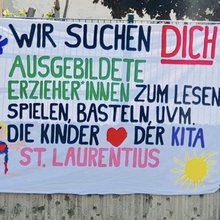 WIR SUCHEN DICH
AUSGEBILDETE
ERZIEHER*INNEN ZUM LESEN,
SPIELEN, BASTELN, UVM.
DIE KINDER DER KITA
ST. LAURENTIUS